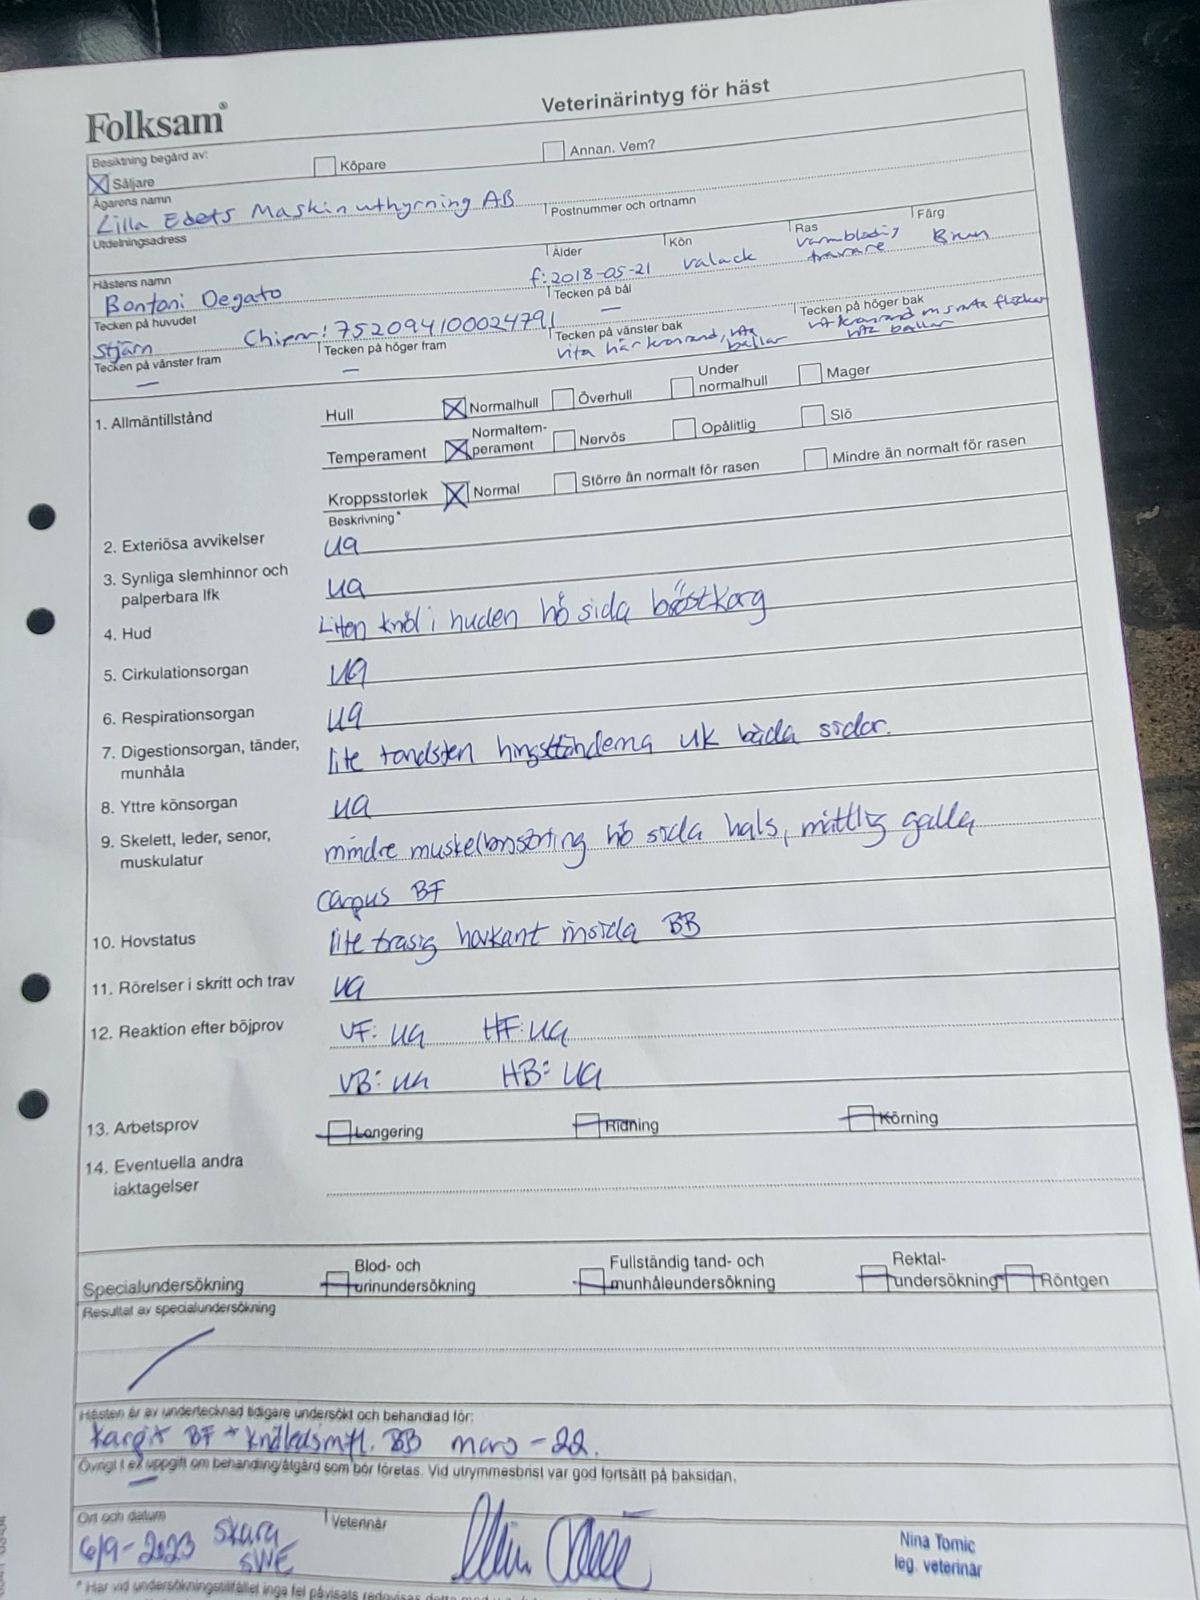 Folksam®
Veterinärintyg för häst
Besiktning begärd av:
Säljare
Köpare
Annan. Vem?
Ägarens namn
Lilla Edets Maskinuthyrning AB
Utdelningsadress
Postnummer och ortnamn
Hästens namn
Bontoni Degato
Ålder
f: 2018-05-21
Kön
valack
Ras
varmblodig
travare
Färg
Brun
Tecken på huvudet
Stjärn
Chipnr: 752094100024791
Tecken på bål
—
Tecken på vänster fram
—
Tecken på höger fram
—
Tecken på vänster bak
vita hår kronrand, vita
ballar
Tecken på höger bak
vit kronrand m svarta fläckar
vita ballar
1. Allmäntillstånd
Hull
Normalhull
Överhull
Under
normalhull
Mager
Temperament
Normaltem-
perament
Nervös
Opålitlig
Slö
Kroppsstorlek
Normal
Större än normalt för rasen
Mindre än normalt för rasen
Beskrivning*
2. Exteriösa avvikelser
ua
3. Synliga slemhinnor och
palperbara lfk
ua
4. Hud
Liten knöl i huden hö sida bröstkorg
5. Cirkulationsorgan
ua
6. Respirationsorgan
ua
7. Digestionsorgan, tänder,
munhåla
lite tandsten hingsttänderna uk båda sidor.
8. Yttre könsorgan
ua
9. Skelett, leder, senor,
muskulatur
mindre muskelinsänkning hö sida hals, måttlig galla
carpus BF
10. Hovstatus
lite trasig hovkant insida BB
11. Rörelser i skritt och trav
ua
12. Reaktion efter böjprov
VF: ua HF: ua
VB: ua HB: ua
13. Arbetsprov
Longering
Ridning
Körning
14. Eventuella andra
iaktagelser
Specialundersökning
Blod- och
urinundersökning
Fullständig tand- och
munhåleundersökning
Rektal-
undersökning
Röntgen
Resultat av specialundersökning
Hästen är av undertecknad tidigare undersökt och behandlad för:
BF + knäledsinfl. BB mars -22.
Övrigt t ex uppgift om behandling/åtgärd som bör företas. Vid utrymmesbrist var god fortsätt på baksidan.
—
Ort och datum
6/9-2023 Skara
SWE
Veterinär
Nina Tomic
leg. veterinär
* Har vid undersökningstillfället inga fel påvisats redovisas detta med